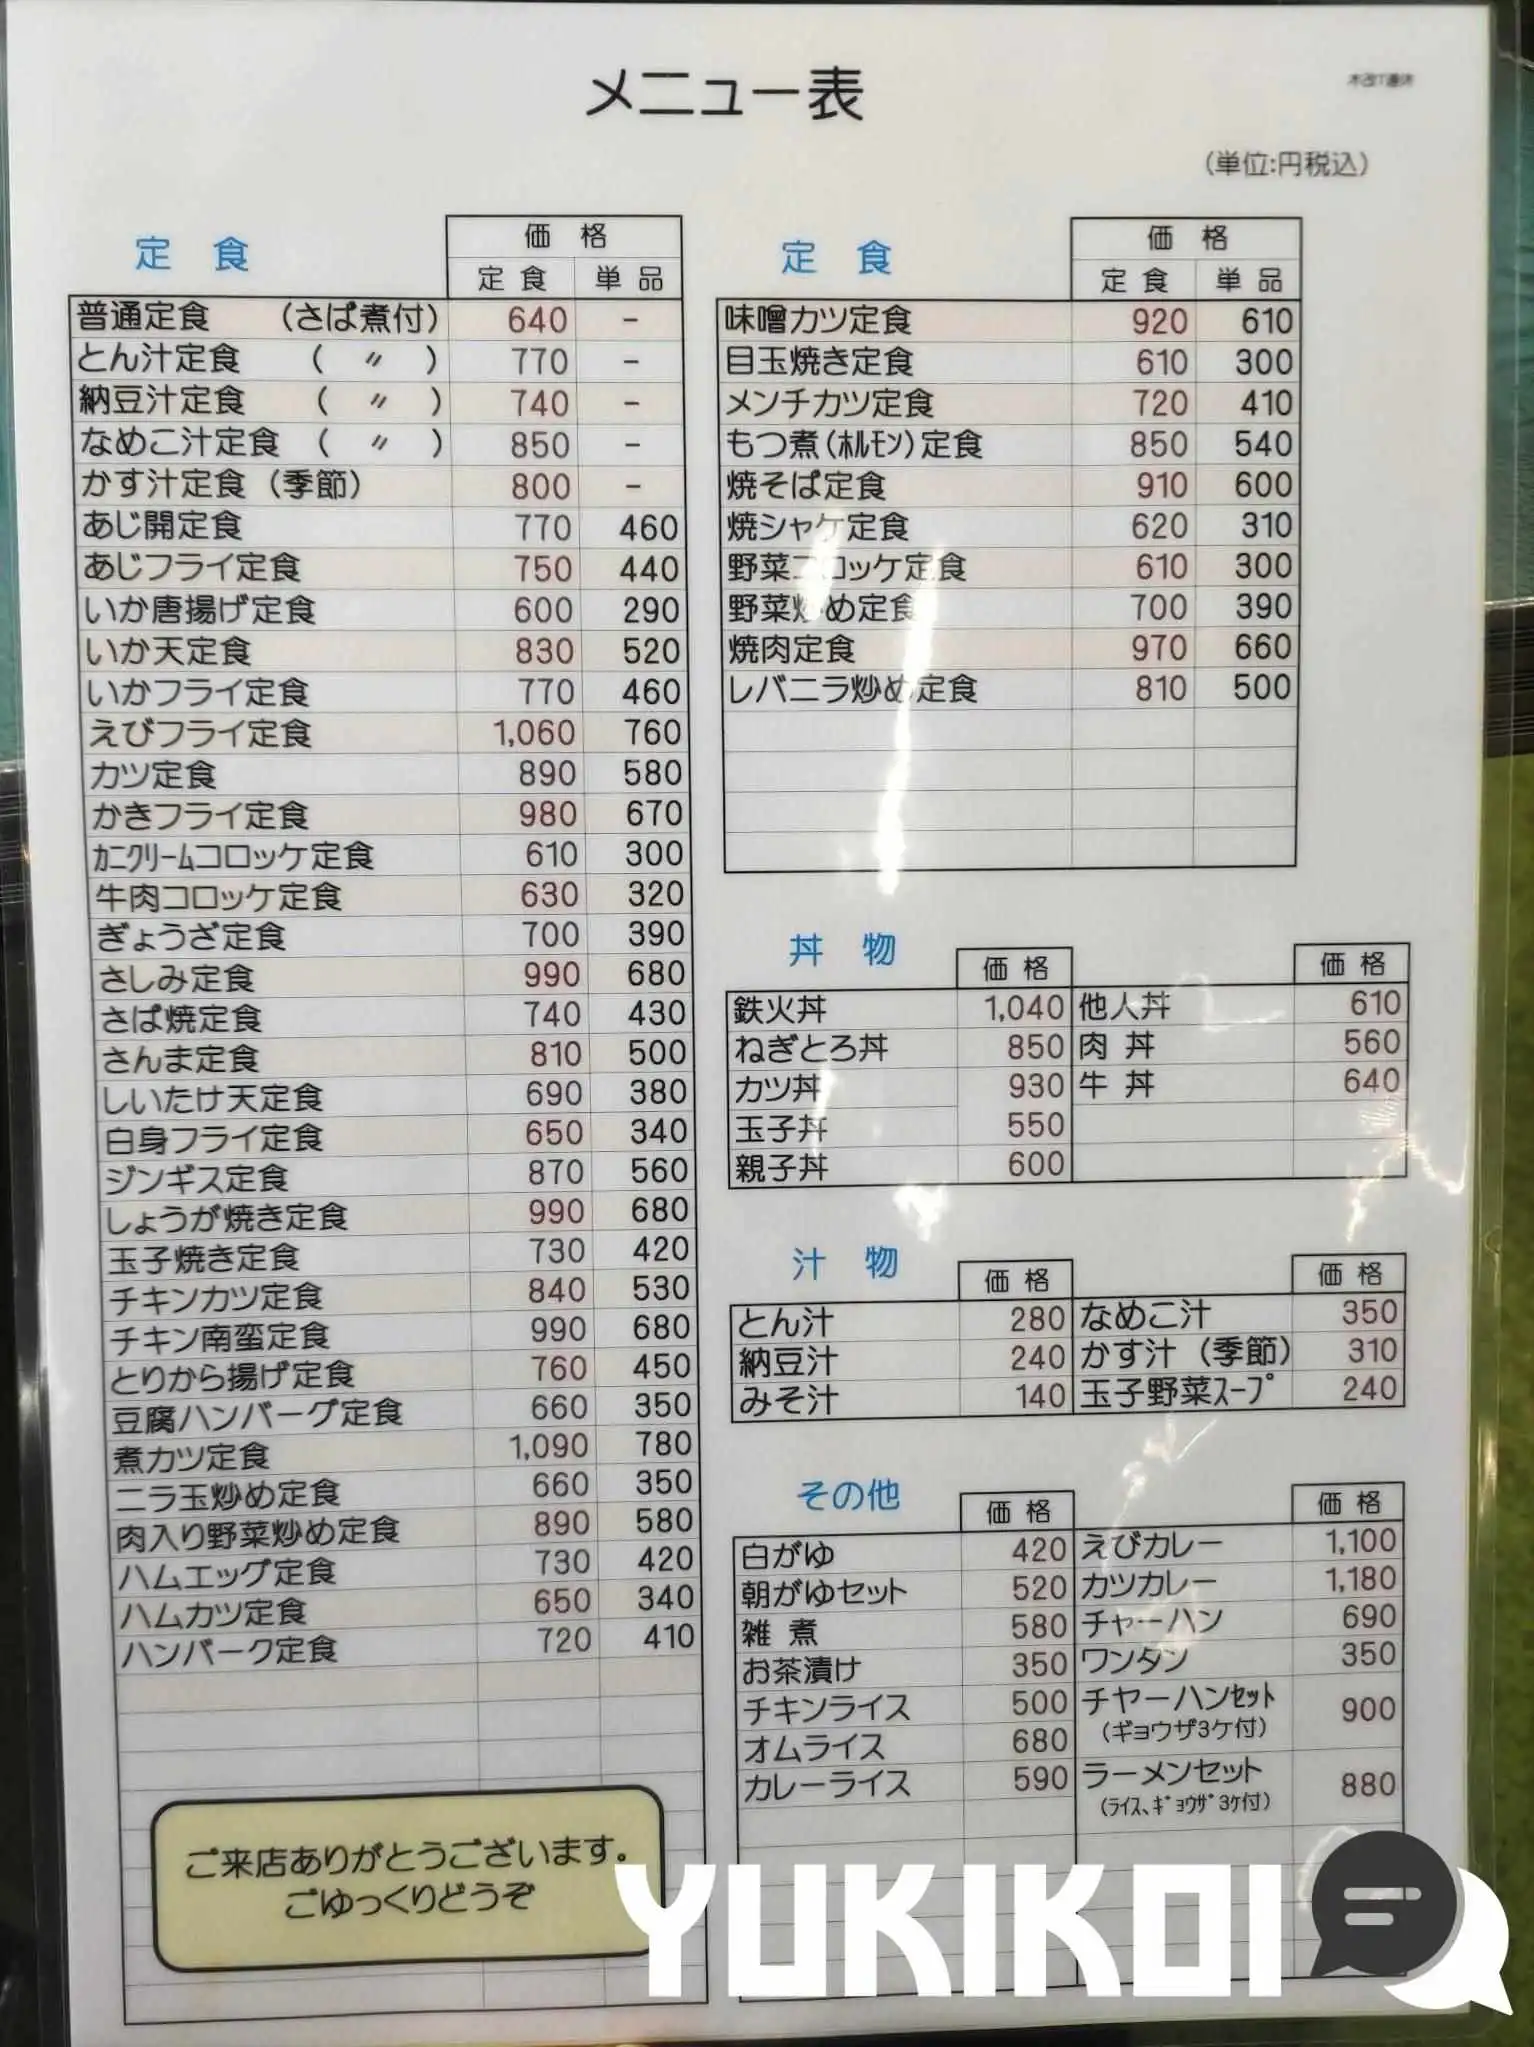 メニュー表
(単位:円税込)
定 食 価 格
定 食 単 品
普通定食 (さば煮付) 640 -
とん汁定食 ( 〃 ) 770 -
納豆汁定食 ( 〃 ) 740 -
なめこ汁定食 ( 〃 ) 850 -
かす汁定食 (季節) 800 -
あじ開定食 770 460
あじフライ定食 750 440
いか唐揚げ定食 600 290
いか天定食 830 520
いかフライ定食 770 460
えびフライ定食 1,060 760
カツ定食 890 580
かきフライ定食 980 670
カニクリームコロッケ定食 610 300
牛肉コロッケ定食 630 320
ぎょうざ定食 700 390
さしみ定食 990 680
さば焼定食 740 430
さんま定食 810 500
しいたけ天定食 690 380
白身フライ定食 650 340
ジンギス定食 870 560
しょうが焼き定食 990 680
玉子焼き定食 730 420
チキンカツ定食 840 530
チキン南蛮定食 990 680
とりから揚げ定食 760 450
豆腐ハンバーグ定食 660 350
煮カツ定食 1,090 780
ニラ玉炒め定食 660 350
肉入り野菜炒め定食 890 580
ハムエッグ定食 730 420
ハムカツ定食 650 340
ハンバーク定食 720 410
ご来店ありがとうございます。
ごゆっくりどうぞ
定 食 価 格
定 食 単 品
味噌カツ定食 920 610
目玉焼き定食 610 300
メンチカツ定食 720 410
もつ煮(ホルモン)定食 850 540
焼そば定食 910 600
焼シャケ定食 620 310
野菜コロッケ定食 610 300
野菜炒め定食 700 390
焼肉定食 970 660
レバニラ炒め定食 810 500
丼 物 価 格 価 格
鉄火丼 1,040 他人丼 610
ねぎとろ丼 850 肉 丼 560
カツ丼 930 牛 丼 640
玉子丼 550
親子丼 600
汁 物 価 格 価 格
とん汁 280 なめこ汁 350
納豆汁 240 かす汁 (季節) 310
みそ汁 140 玉子野菜スープ 240
その他 価 格 価 格
白がゆ 420 えびカレー 1,100
朝がゆセット 520 カツカレー 1,180
雑 煮 580 チャーハン 690
お茶漬け 350 ワンタン 350
チキンライス 500 チヤーハンセット 900
(ギョウザ3ケ付)
オムライス 680
カレーライス 590 ラーメンセット 880
(ライス、ギョウザ3ケ付)
YUKIKOI